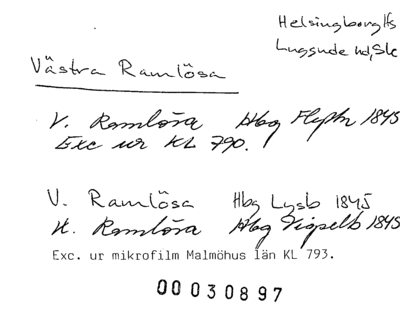 Helsingborg lfs
Luggude hd, Sk
Västra Ramlösa
V. Ramlösa Hbg Flyttn 1845
Exc ur KL 790.
V. Ramlösa Hbg Lysb 1845
V. Ramlösa Hbg Vigselb 1845
Exc. ur mikrofilm Malmöhus län KL 793.
00030897